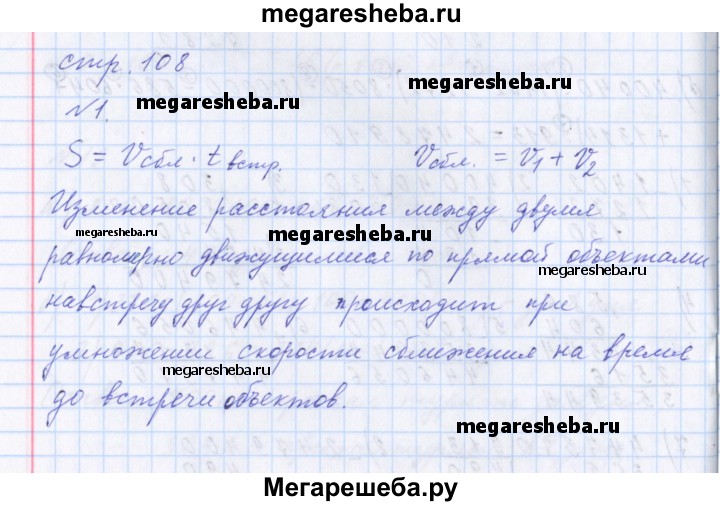 megaresheba.ru
стр. 108
megaresheba.ru
№1.
megaresheba.ru
S = Vсбл. · t встр. Vсбл. = V₁ + V₂
Изменение расстояния между двумя
megaresheba.ru
megaresheba.ru
равномерно движущимися по прямой объектами
megaresheba.ru
навстречу друг другу происходит при
умножении скорости сближения на время
megaresheba.ru
до встречи объектов.
megaresheba.ru
Мегарешеба.ру